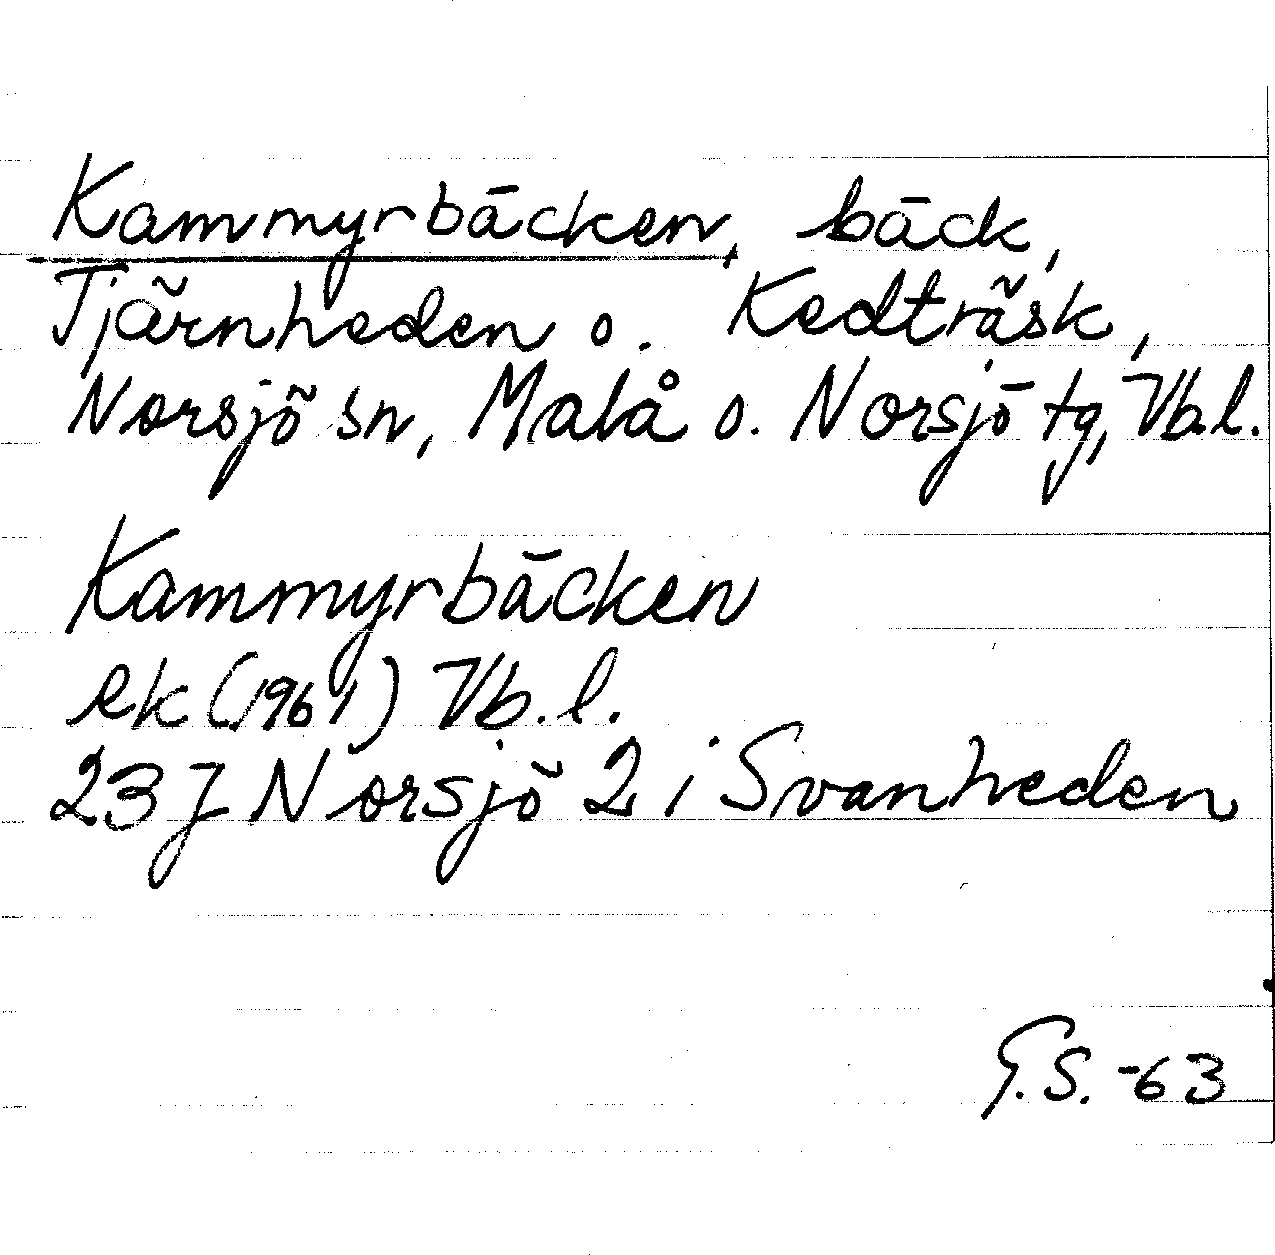 Kammyrbäcken, bäck,
Tjärnheden o. Kedträsk,
Norsjö sn, Malå o. Norsjö tg, Vb.l.
Kammyrbäcken
ek (1961) Vb.l.
23J Norsjö 2 i Svanheden
G.S. -63